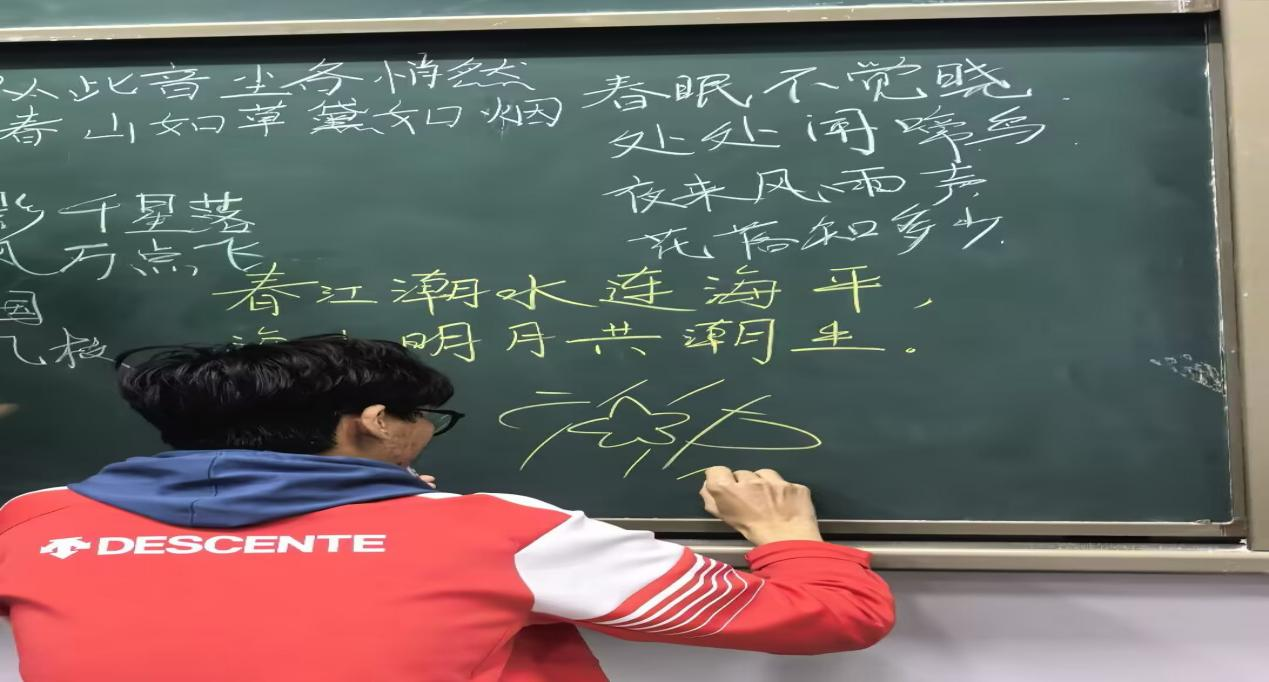 从此音尘各悄然
春山如草黛如烟
影千星落
风万点飞
国
枝
春眠不觉晓.
处处闻啼鸟.
夜来风雨声
花落知多少.
春江潮水连海平,
海 明月共潮生。
DESCENTE